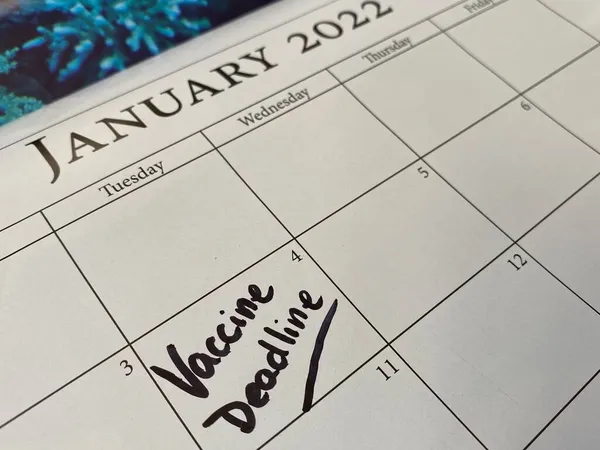 JANUARY 2022
Tuesday Wednesday Thursday Friday
3 4 5 6
Vaccine
Deadline
11 12